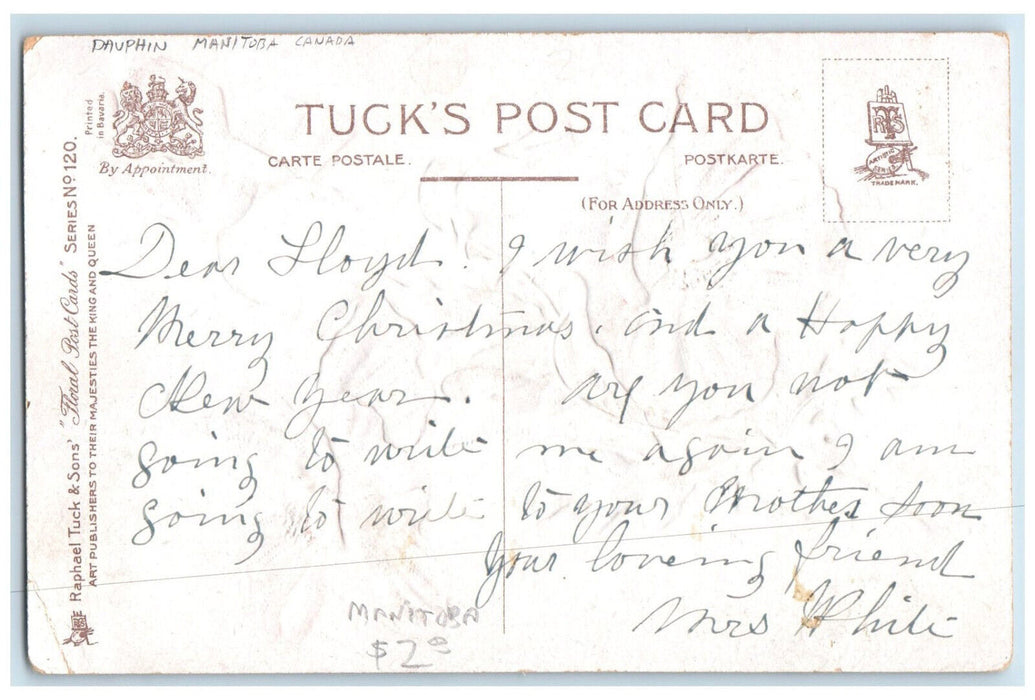 DAUPHIN MANITOBA CANADA
Printed
in Bavaria.
By Appointment.
TUCK'S POST CARD
CARTE POSTALE.
POSTKARTE.
(FOR ADDRESS ONLY.)
ARTISTIC
SERIES
TRADE MARK.
Raphael Tuck & Sons' "Floral Post Cards" SERIES No 120.
ART PUBLISHERS TO THEIR MAJESTIES THE KING AND QUEEN
Dear Lloyd. I wish you a very
Merry Christmas. and a Happy
New Year. are you not
going to write me again I am
going to write to your Mother soon
your loveing friend
Mrs White
MANITOBA
$2 00